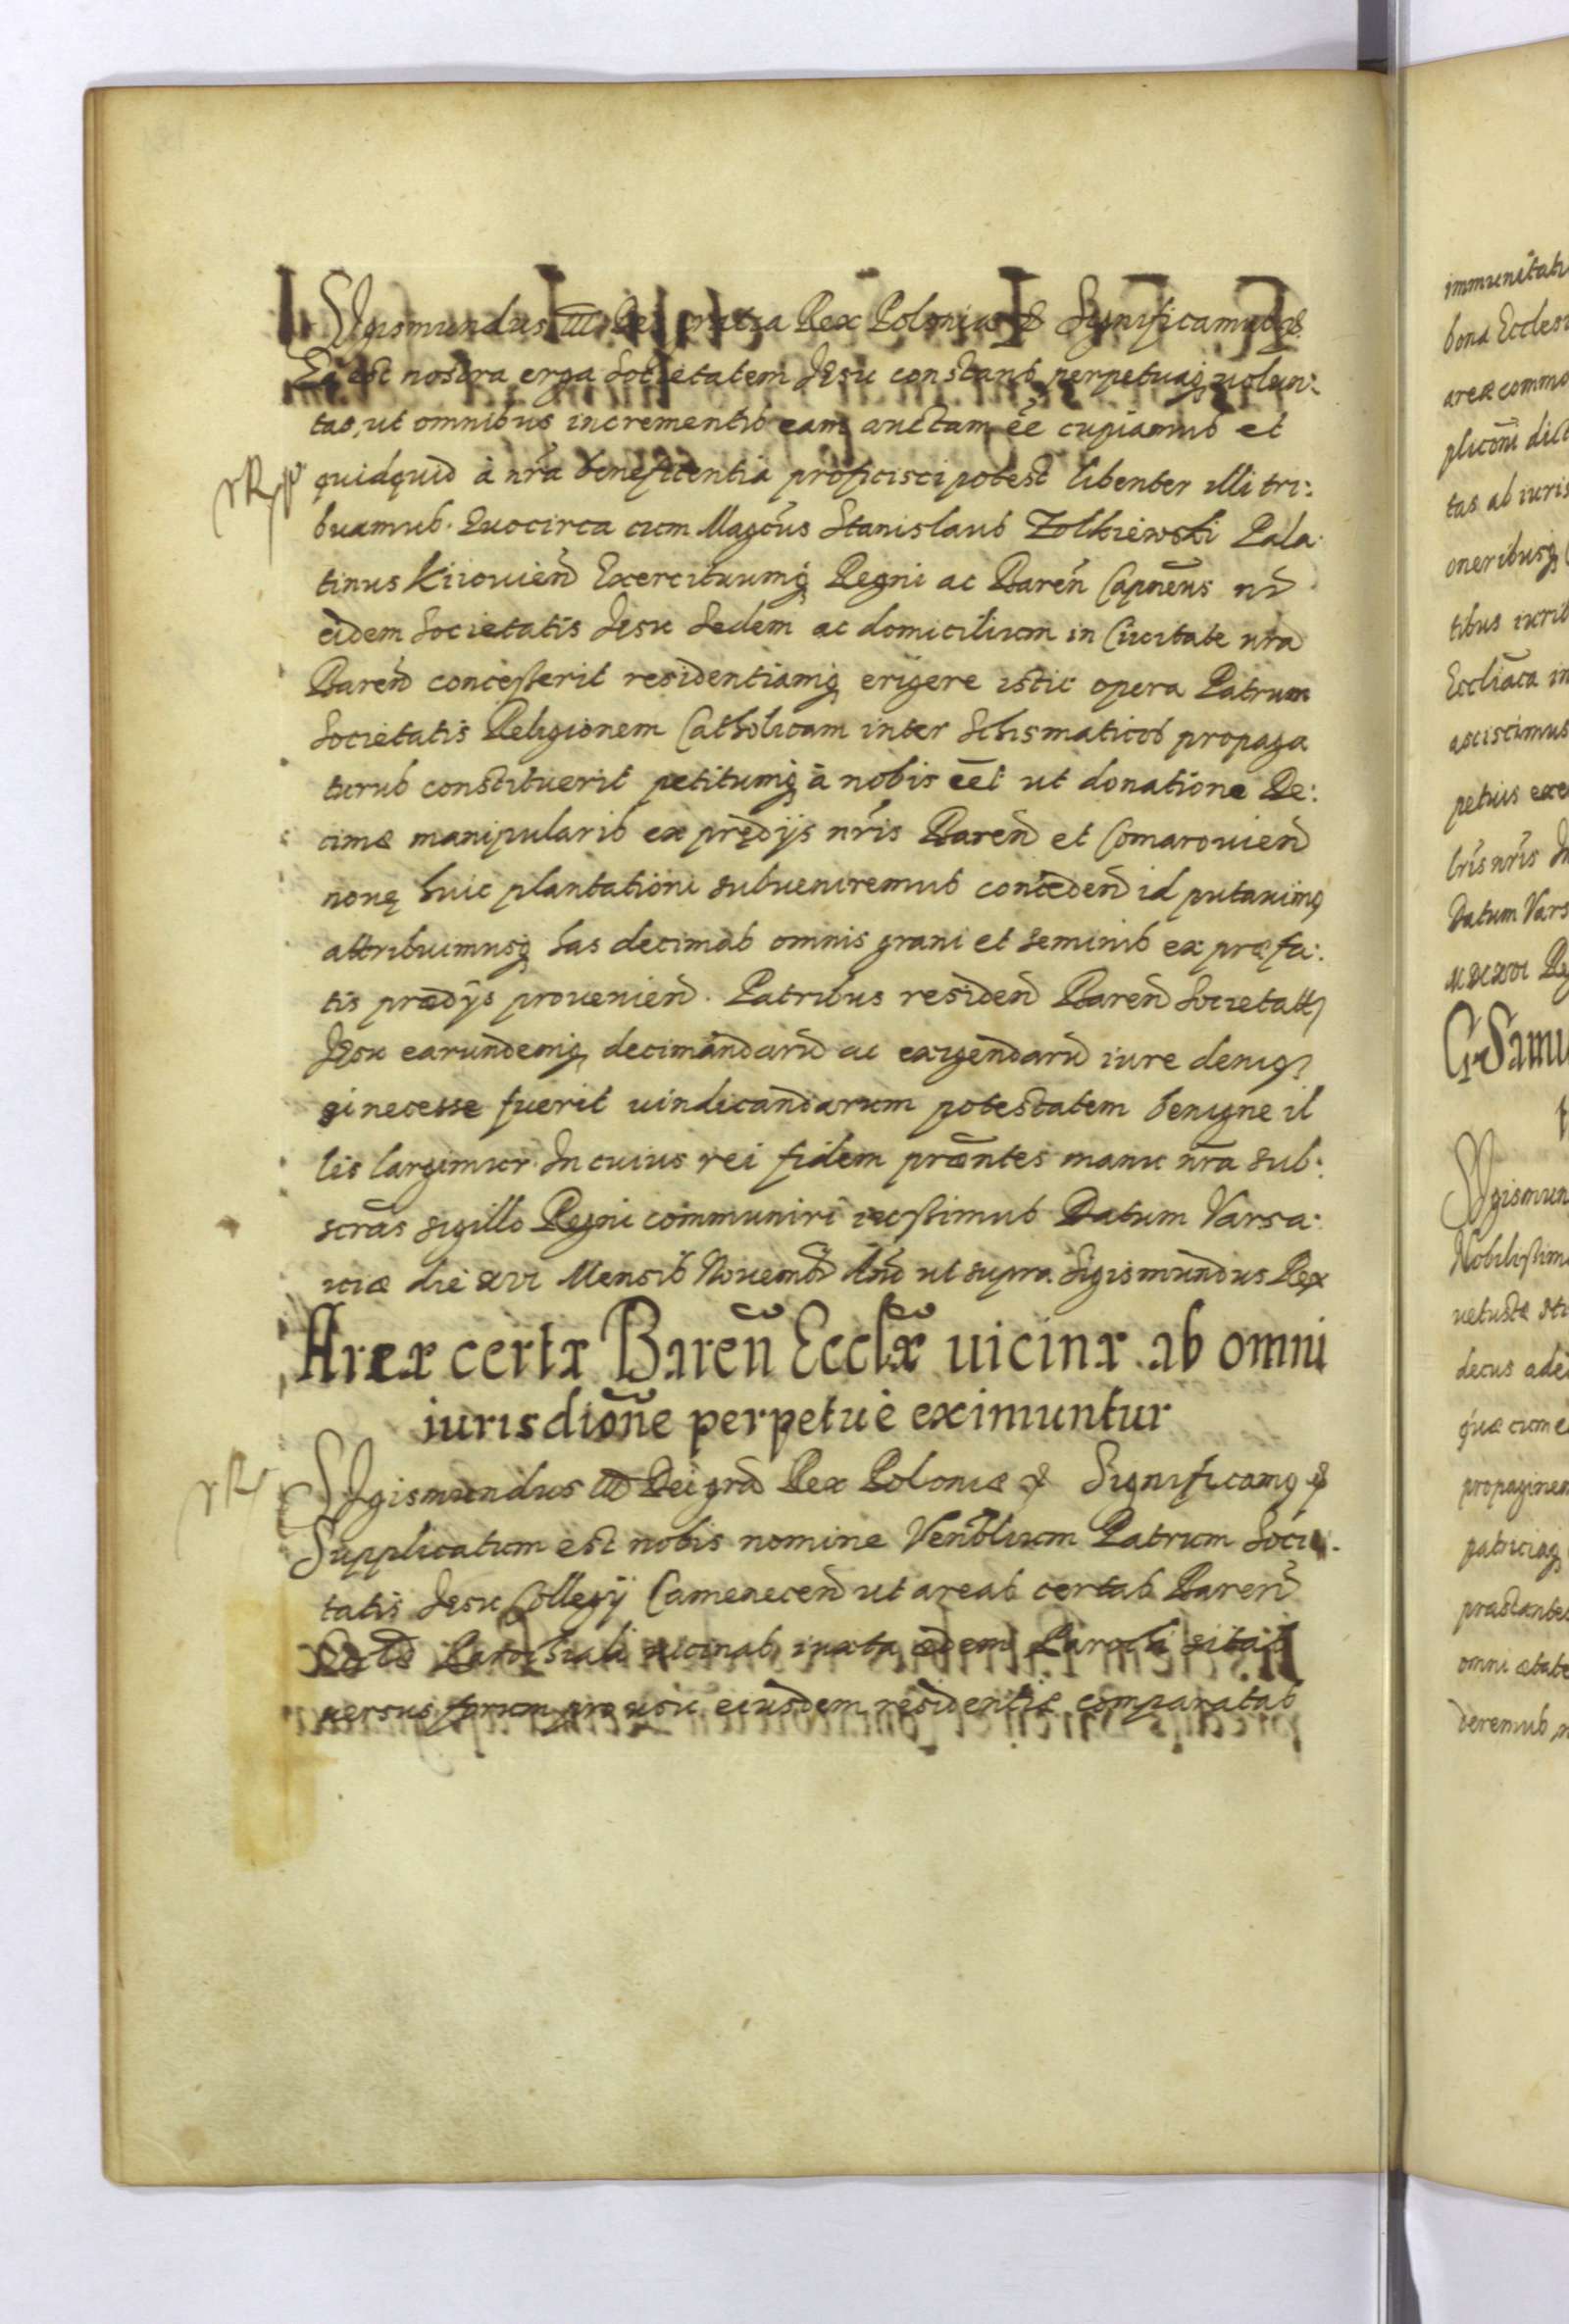 Sigismundus III Dei gratia Rex Poloniæ & Significamus &
Ea est nostra erga Societatem Jesu constans perpetuaq volun:
tas, ut omnibus incrementis eam auctam ēē cupiamus et
quidquid à nrã beneficentia proficisci potest libenter illi tri:
buamus. Quocirca cum Magcus Stanislaus Zolkiewski Pala:
tinus Kiiouien Exercituumq Regni ac Baren Capneus nr
eidem Societatis Jesu Sedem ac domicilium in Ciuitate nra
Baren concesserit residentiamq erigere istic opera Patrum
Societatis Religionem Catholicam inter Schismaticos propaga
turus constituerit petitumq à nobis eet ut donatione De:
cimæ manipularis ex prędijs nris Baren et Comarouien
nonę huic plantationi subueniremus conceden id putauimq
attribuimusq has decimas omnis grani et seminis ex præfa:
tis prædijs prouenien. Patribus residen Baren Societatis
Jesu earundemq decimandarū ac exigendarū iure deniq
si necesse fuerit uindicandarum potestatem benigne il
lis largimur. In cuius rei fidem præntes manu nra sub:
scras sigillo Regni communiri iussimus Datum Varsa:
uiæ die XVI Mensis Nouemb Ano ut supra Sigismundus Rex
Areæ certæ Baren Ecclæ uicinæ ab omni
iurisdione perpetuè eximuntur
Sigismundus III Dei gra Rex Poloniæ & Significamq &
Supplicatum est nobis nomine Venblium Patrum Socie:
tatis Jesu Collegij Camenecen ut areas certas Baren
Parochiali uicinas, iuxta ædem Parochi sitas
uersus forum pro usu eiusdem residentiæ comparatas
immunitatu
bona Eccles
areæ commo
plicõni dict
tas ab iuris
oneribusq
tibus iurib
Eccliaca in
asciscimus
petuis exe
lris nris In
Datum Vars
Sigismun
Nobilissim
uetustæ
decus ade
quæ cum e
propaginem
patriciaq
præstantes
omni ætate
deremus